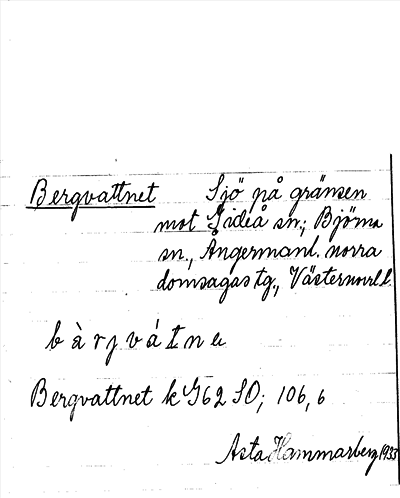 Bergvattnet Sjö på gränsen
mot Gideå sn.; Björna
sn., Ångermanl. norra
domsagas tg., Västernorrl. l.
b à r j v á t n e
Bergvattnet k G62 SO; 106, 6
Asta Hammarberg 1933